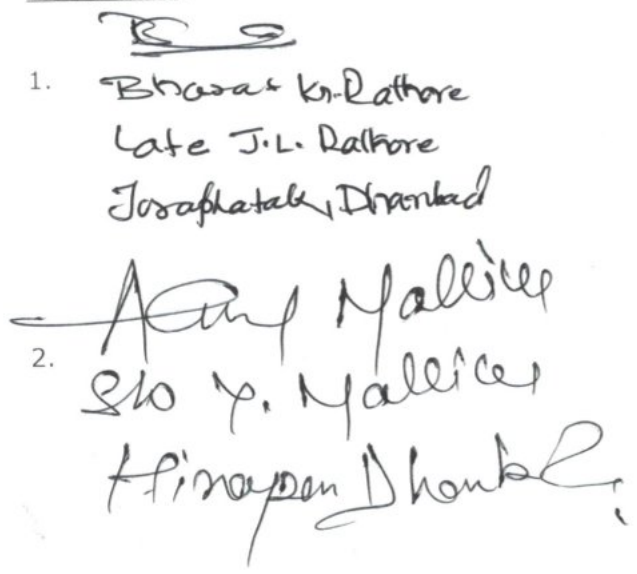 1. Bharat Kr. Rathore
Late J.L. Rathore
Joraphatak, Dhanbad
Mallick
2. S/o Y. Mallick
Hirapur Dhanbad